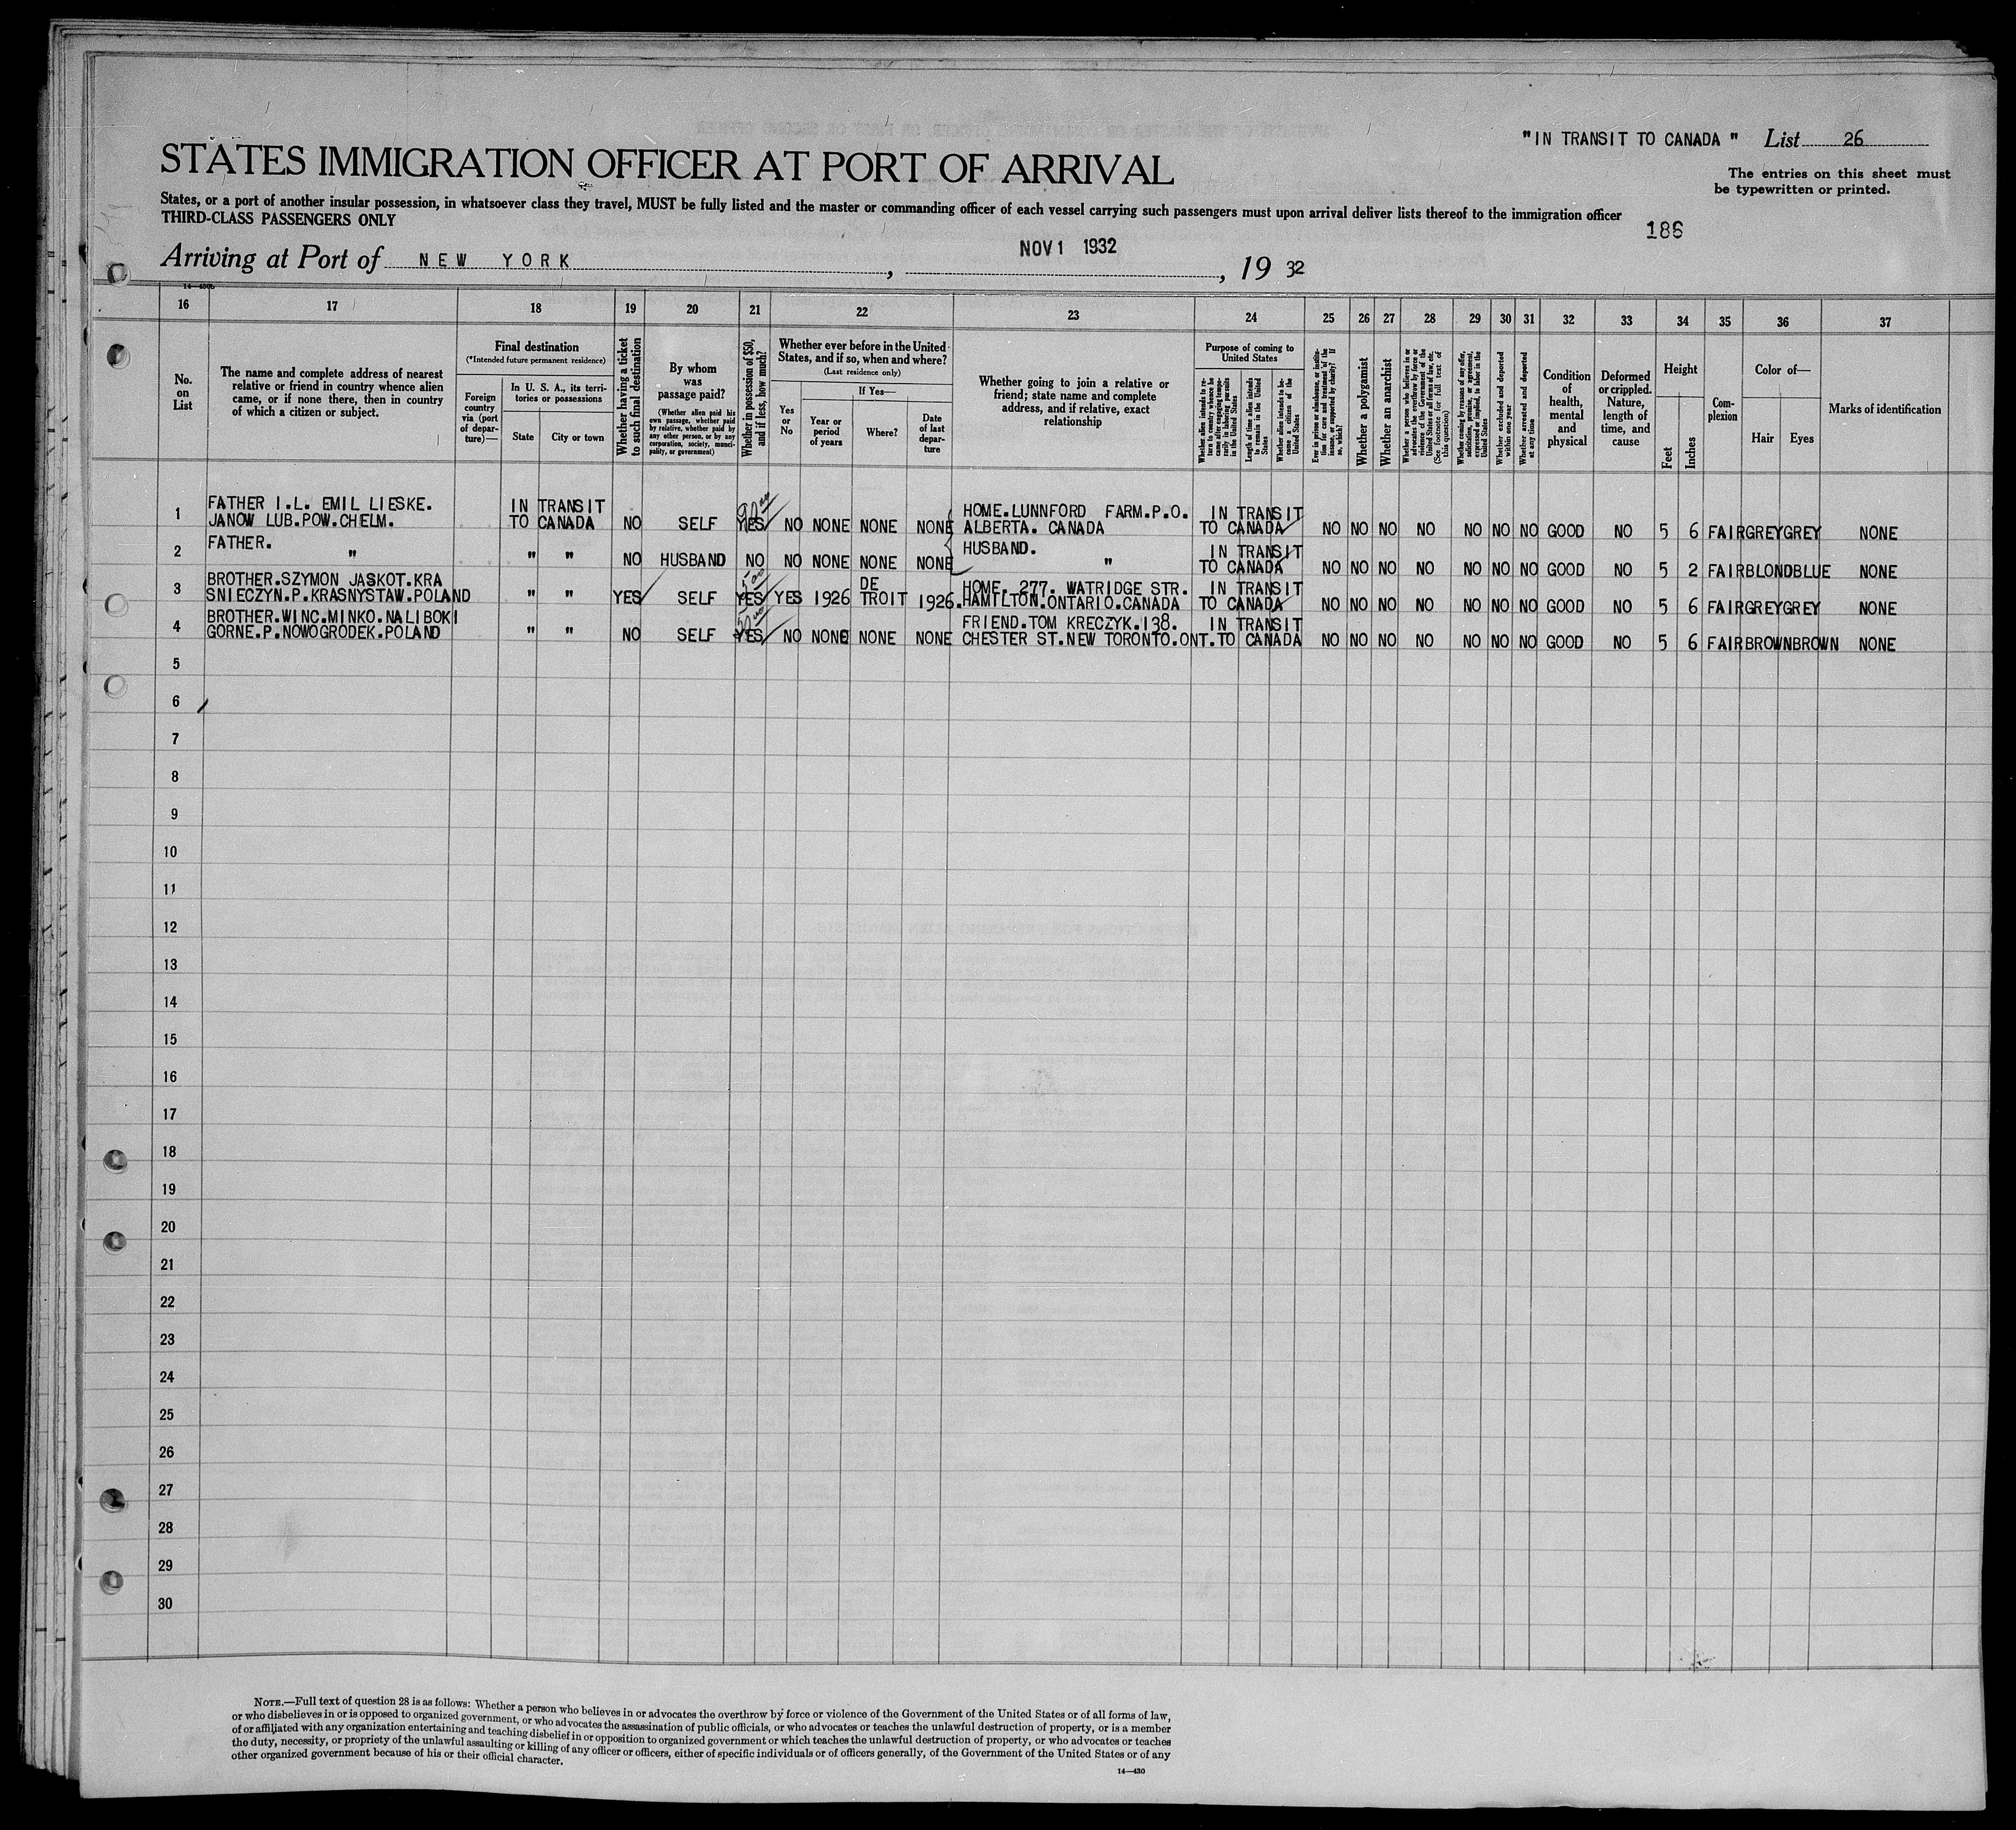 "IN TRANSIT TO CANADA " List 26
STATES IMMIGRATION OFFICER AT PORT OF ARRIVAL
The entries on this sheet must
be typewritten or printed.
States, or a port of another insular possession, in whatsoever class they travel, MUST be fully listed and the master or commanding officer of each vessel carrying such passengers must upon arrival deliver lists thereof to the immigration officer
THIRD-CLASS PASSENGERS ONLY
186
Arriving at Port of NEW YORK, NOV 1 1932, 19 32
16 17 18 19 20 21 22 23 24 25 26 27 28 29 30 31 32 33 34 35 36 37
No.
on
List
The name and complete address of nearest
relative or friend in country whence alien
came, or if none there, then in country
of which a citizen or subject.
Final destination
(*Intended future permanent residence)
Foreign
country
via (port
of depar-
ture)—
In U. S. A., its terri-
tories or possessions
State City or town
Whether having a ticket
to such final destination
By whom
was
passage paid?
(Whether alien paid his
own passage, whether paid
by relative, whether paid by
any other person, or by any
corporation, society, munici-
pality, or government)
Whether in possession of $50,
and if less, how much?
Whether ever before in the United
States, and if so, when and where?
(Last residence only)
Yes
or
No
If Yes—
Year or
period
of years
Where?
Date
of last
depar-
ture
Whether going to join a relative or
friend; state name and complete
address, and if relative, exact
relationship
Purpose of coming to
United States
Whether alien intends to re-
turn to country whence he
came after engaging tempo-
rarily in laboring pursuits
in the United States
Length of time alien intends
to remain in the United
States
Whether alien intends to be-
come a citizen of the
United States
Ever in prison or almshouse, or institu-
tion for care and treatment of the
insane, or supported by charity? If
so, which?
Whether a polygamist
Whether an anarchist
Whether a person who believes in or
advocates the overthrow by force or
violence of the Government of the
United States or all forms of law, etc.
(See footnote for full text of
this question)
Whether coming by reason of any offer,
solicitation, promise, or agreement,
expressed or implied, to labor in the
United States
Whether excluded and deported
within one year
Whether arrested and deported
at any time
Condition
of
health,
mental
and
physical
Deformed
or crippled.
Nature,
length of
time, and
cause
Height
Feet Inches
Com-
plexion
Color of—
Hair Eyes
Marks of identification
FATHER I.L. EMIL LIESKE. IN TRANSIT HOME.LUNNFORD FARM.P.O. IN TRANSIT
1 JANOW LUB.POW.CHELM. TO CANADA NO SELF YES NO NONE NONE NONE ALBERTA. CANADA TO CANADA NO NO NO NO NO NO NO GOOD NO 5 6 FAIR GREY GREY NONE
FATHER. HUSBAND. IN TRANSIT
2 " " " NO HUSBAND NO NO NONE NONE NONE " TO CANADA NO NO NO NO NO NO NO GOOD NO 5 2 FAIR BLOND BLUE NONE
BROTHER.SZYMON JASKOT.KRA DE HOME. 277. WATRIDGE STR. IN TRANSIT
3 SNIECZYN.P.KRASNYSTAW.POLAND " " YES SELF YES YES 1926 TROIT 1926. HAMILTON.ONTARIO.CANADA TO CANADA NO NO NO NO NO NO NO GOOD NO 5 6 FAIR GREY GREY NONE
BROTHER.WINC.MINKO.NALIBOKI FRIEND.TOM KRECZYK.138. IN TRANSIT
4 GORNE.P.NOWOGRODEK.POLAND " " NO SELF YES NO NONE NONE NONE CHESTER ST.NEW TORONTO.ONT. TO CANADA NO NO NO NO NO NO NO GOOD NO 5 6 FAIR BROWN BROWN NONE
5
6
7
8
9
10
11
12
13
14
15
16
17
18
19
20
21
22
23
24
25
26
27
28
29
30
NOTE.—Full text of question 28 is as follows: Whether a person who believes in or advocates the overthrow by force or violence of the Government of the United States or of all forms of law,
or who disbelieves in or is opposed to organized government, or who advocates the assassination of public officials, or who advocates or teaches the unlawful destruction of property, or is a member
of or affiliated with any organization entertaining and teaching disbelief in or opposition to organized government or which teaches the unlawful destruction of property, or who advocates or teaches
the duty, necessity, or propriety of the unlawful assaulting or killing of any officer or officers, either of specific individuals or of officers generally, of the Government of the United States or of any
other organized government because of his or their official character.
14—430